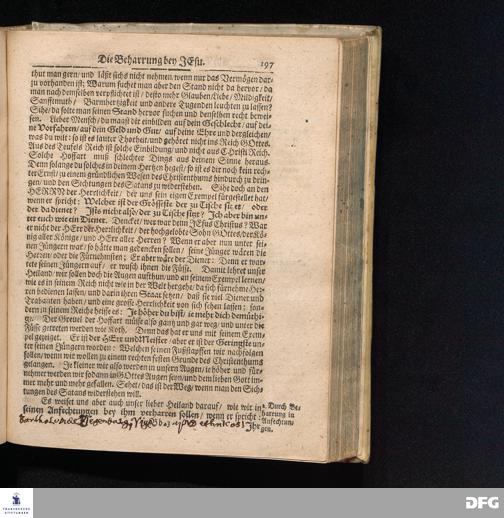 Die Beharrung bey JEsu. 197
thut man gern/ und läßt sichs nicht nehmen wenn nur das Vermögen dar-
zu vorhanden ist: Warum suchet man aber den Stand nicht da hervor/ da
man nach demselben verpflichtet ist/ desto mehr Glauben/ Liebe/ Mildigkeit/
Sanfftmuth/ Barmhertzigkeit und andere Tugenden leuchten zu lassen?
Sihe/ da solte man seinen Stand hervor suchen und denselben recht bewei-
sen. Lieber Mensch/ du magst dir einbilden auf dein Geschlecht/ auf dei-
ne Vorfahren/ auf dein Geld und Gut/ auf deine Ehre und dergleichen/
was du wilt: so ist es lauter Thorheit/ und gehöret nicht ins Reich GOttes.
Aus des Teufels Reich ist solche Einbildung/ und nicht aus Christi Reich.
Solche Hoffart muß schlechter Dings aus deinem Sinne heraus.
Denn solange du solches in deinem Hertzen hegest/ so ist es dir noch kein rech-
ter Ernst/ zu einem gründlichen Wesen des Christenthums hindurch zu drin-
gen/ und den Sichtungen des Satans zu widerstehen. Sihe doch an den
HERRN der Herrlichkeit/ der uns sein eigen Exempel fürgestellet hat/
wenn er spricht: Welcher ist der Grösseste der zu Tische sitzet/ oder
der da dienet? Ists nicht also/ der zu Tische sitzt? Ich aber bin un-
ter euch wie ein Diener. Dencket/ wer war denn JEsus Christus? War
er nicht der HErr der Herrlichkeit/ der hochgelobte Sohn GOttes/ der Kö-
nig aller Könige/ und HErr aller Herren? Wenn er aber nun unter sei-
nen Jüngern war/ so hätte man gedencken sollen/ seine Jünger wären die
Herren/ oder die Fürnehmsten; Er aber wäre der Diener: Denn er war-
tete seinen Jüngern auf/ er wusch ihnen die Füsse. Damit lehret unser
Heiland/ wir sollen doch die Augen aufthun/ und an seinem Exempel lernen/
wie es in seinem Reich nicht wie in der Welt hergehe/ da sich fürnehme Her-
ren bedienen lassen/ und darin ihren Staat sehen/ daß sie viel Diener und
Trabanten haben/ und eine grosse Herrlichkeit von sich sehen lassen; son-
dern in seinem Reiche heisse es: Je höher du bist/ je mehr dich demüthi-
ge. Der Greuel der Hoffart müsse also gantz und gar weg/ und unter die
Füsse getreten werden wie Koth. Denn das hat er uns mit seinem Exem-
pel gezeiget. Er ist der HErr und Meister/ aber er ist der Geringste un-
ter seinen Jüngern worden: Welchen seinen Fußstapffen wir nachfolgen
sollen/ wenn wir wollen zu einem rechten festen Grunde des Christenthums
gelangen. Je kleiner wir also werden in unsern Augen/ je höher und für-
nehmer werden wir sodann in GOttes Augen seyn/ und dem lieben Gott im-
mer mehr und mehr gefallen. Sehet/ das ist der Weg/ wenn man den Sich-
tungen des Satans widerstehen will.
Es weiset uns aber auch unser lieber Heiland darauf/ wie wir in
seinen Anfechtungen bey ihm verharren sollen/ wenn er spricht:
Ihr
2. Durch Be-
harrung in
Anfechtun-
gen.
FRANCKESCHE STIFTUNGEN
DFG